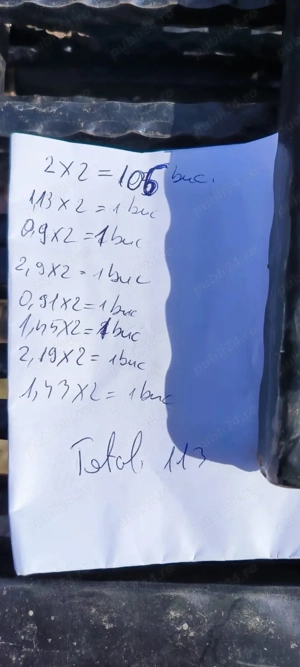 2 x 2 = 106 buc.
1,13 x 2 = 1 buc
0,9 x 2 = 1 buc
2,9 x 2 = 1 buc
0,91 x 2 = 1 buc
1,45 x 2 = 1 buc
2,19 x 2 = 1 buc
1,43 x 2 = 1 buc
Total. 113